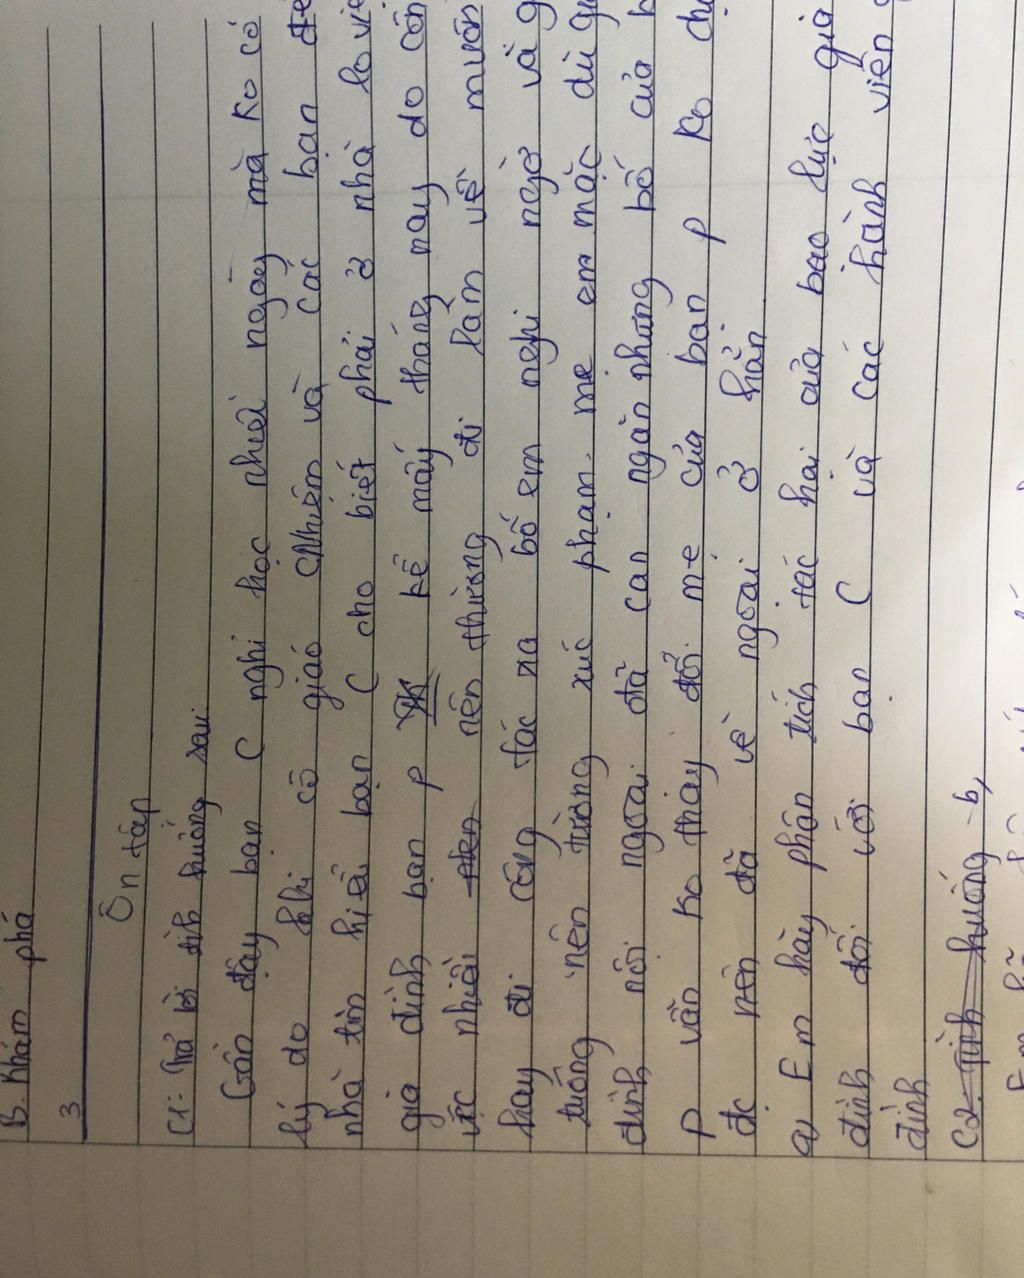 B. Khám phá
3
Ôn tập
C1: Trả lời tình huống sau:
Gần đây bạn C nghỉ học nhiều ngày mà ko có
lý do khi cô giáo CNhiệm và các bạn đế
nhà tìm hiểu bạn C cho biết phải ở nhà
gia đình bạn P kể mấy tháng nay do côn
việc nhiều nên thường đi làm về muộn
hay đi công tác xa bố em nghi ngờ và g
tuông nên thường xúc phạm mẹ em mặc dù gi
đình nội ngoại đã can ngăn nhưng bố của b
P vẫn ko thay đổi mẹ của bạn P ko chị
đc nên đã về ngoại ở hẳn
a, Em hãy phân tích tác hại của bạo lực gia
đình đối với bạn C và các hành viên
đình
C2. Tình huống b,